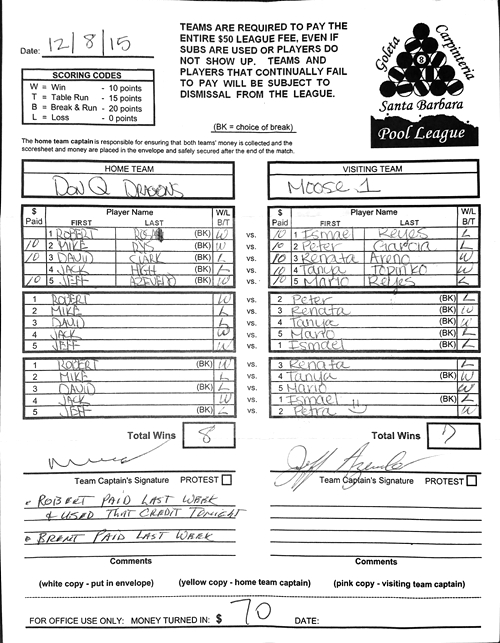 Date: 12/8/15
TEAMS ARE REQUIRED TO PAY THE
ENTIRE $50 LEAGUE FEE, EVEN IF
SUBS ARE USED OR PLAYERS DO
NOT SHOW UP. TEAMS AND
PLAYERS THAT CONTINUALLY FAIL
TO PAY WILL BE SUBJECT TO
DISMISSAL FROM THE LEAGUE.
(BK = choice of break)
Goleta
Carpinteria
8
Santa Barbara
Pool League
SCORING CODES
W = Win - 10 points
T = Table Run - 15 points
B = Break & Run - 20 points
L = Loss - 0 points
The home team captain is responsible for ensuring that both teams' money is collected and the
scoresheet and money are placed in the envelope and safely secured after the end of the match.
HOME TEAM VISITING TEAM
DON Q DRAGONS Moose 1
$ Paid Player Name FIRST LAST W/L B/T $ Paid Player Name FIRST LAST W/L B/T
1 ROBERT (BK) W vs. 10 1 Ismael Reyes L
10 2 MIKE DYS W vs. 10 2 Peter Garcia L
10 3 DAVID CLARK (BK) L vs. 10 3 Renata Areno W
4 JACK HIGH L vs. 10 4 Tanya Topinko (BK) W
10 5 JEFF AZEVEDO (BK) W vs. 10 5 Mario Reyes L
1 ROBERT W vs. 2 Peter (BK) L
2 MIKE L vs. 3 Renata (BK) W
3 DAVID L vs. 4 Tanya (BK) W
4 JACK W vs. 5 Mario (BK) L
5 JEFF W vs. 1 Ismael (BK) L
1 ROBERT (BK) W vs. 3 Renata L
2 MIKE L vs. 4 Tanya (BK) W
3 DAVID (BK) L vs. 5 Mario W
4 JACK W vs. 1 Ismael (BK) L
5 JEFF (BK) L vs. 2 Petra W
Total Wins 8 Total Wins 7
Jeff Azevedo
Team Captain's Signature PROTEST Team Captain's Signature PROTEST
• ROBERT PAID LAST WEEK
& USED THAT CREDIT TONIGHT
• BRENT PAID LAST WEEK
Comments Comments
(white copy - put in envelope) (yellow copy - home team captain) (pink copy - visiting team captain)
FOR OFFICE USE ONLY: MONEY TURNED IN: $ 70 DATE: